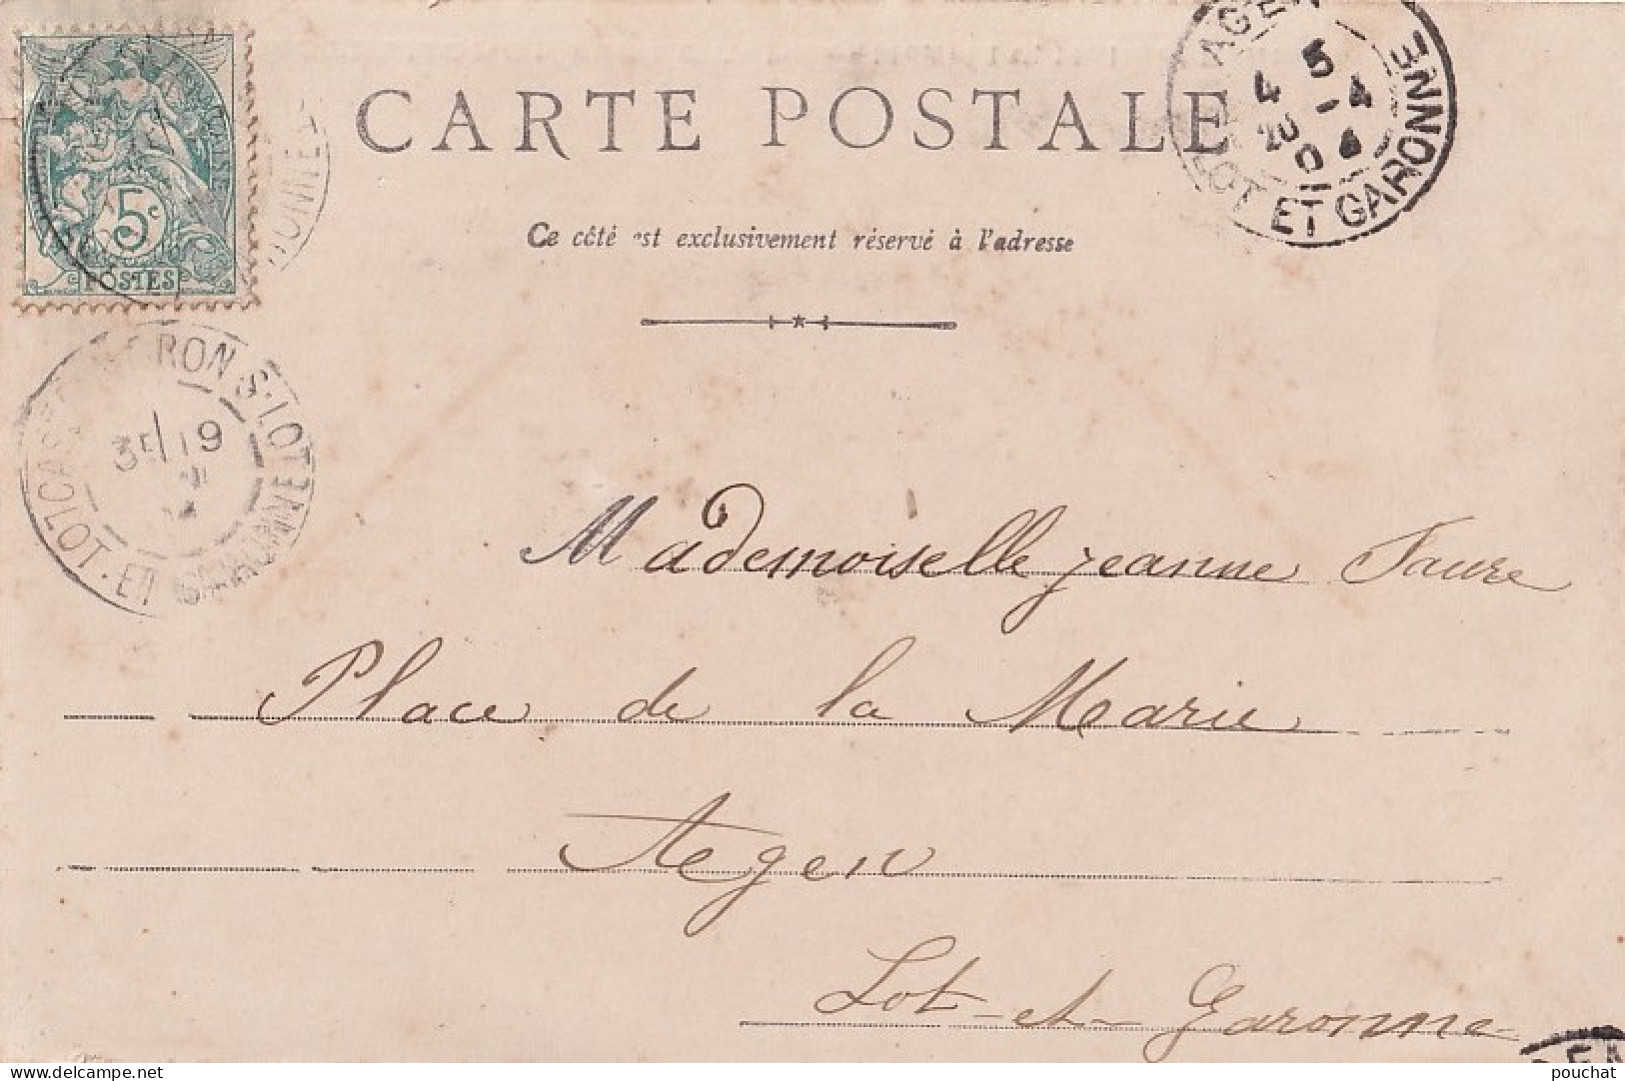 CARTE POSTALE
Ce côté est exclusivement réservé à l'adresse
5c
POSTES
AGEN
4 5
20 -4
0
LOT ET GARONNE
RON S. LOT
35 19
LOT. ET GARONNE
Mademoiselle Jeanne Faure
Place de la Marie
Agen
Lot-et-Garonne
delcampe.net
pouchat